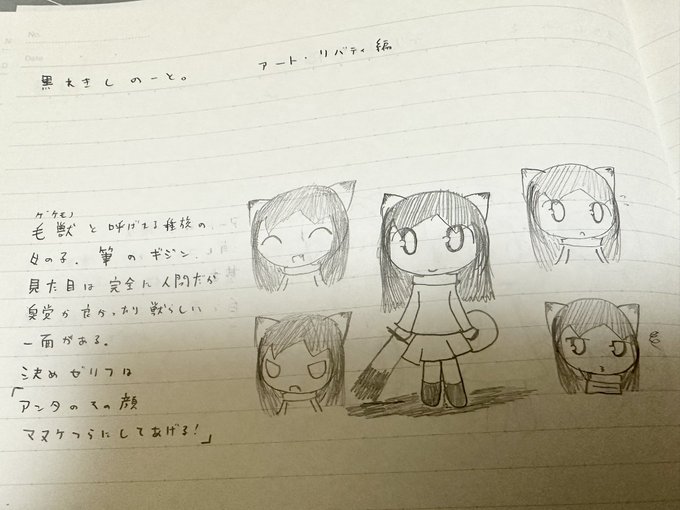 No.
Date
アート・リバティ編
黒れきしのーと。
ケ゛ケモノ
毛獣と呼ばれる種族の
女の子。筆のギジン。
見た目は完全に人間だが
臭覚が良かったり獣らしい
一面がある。
決めゼリフは
「アンタのその顔
マヌケづらにしてあげる!」